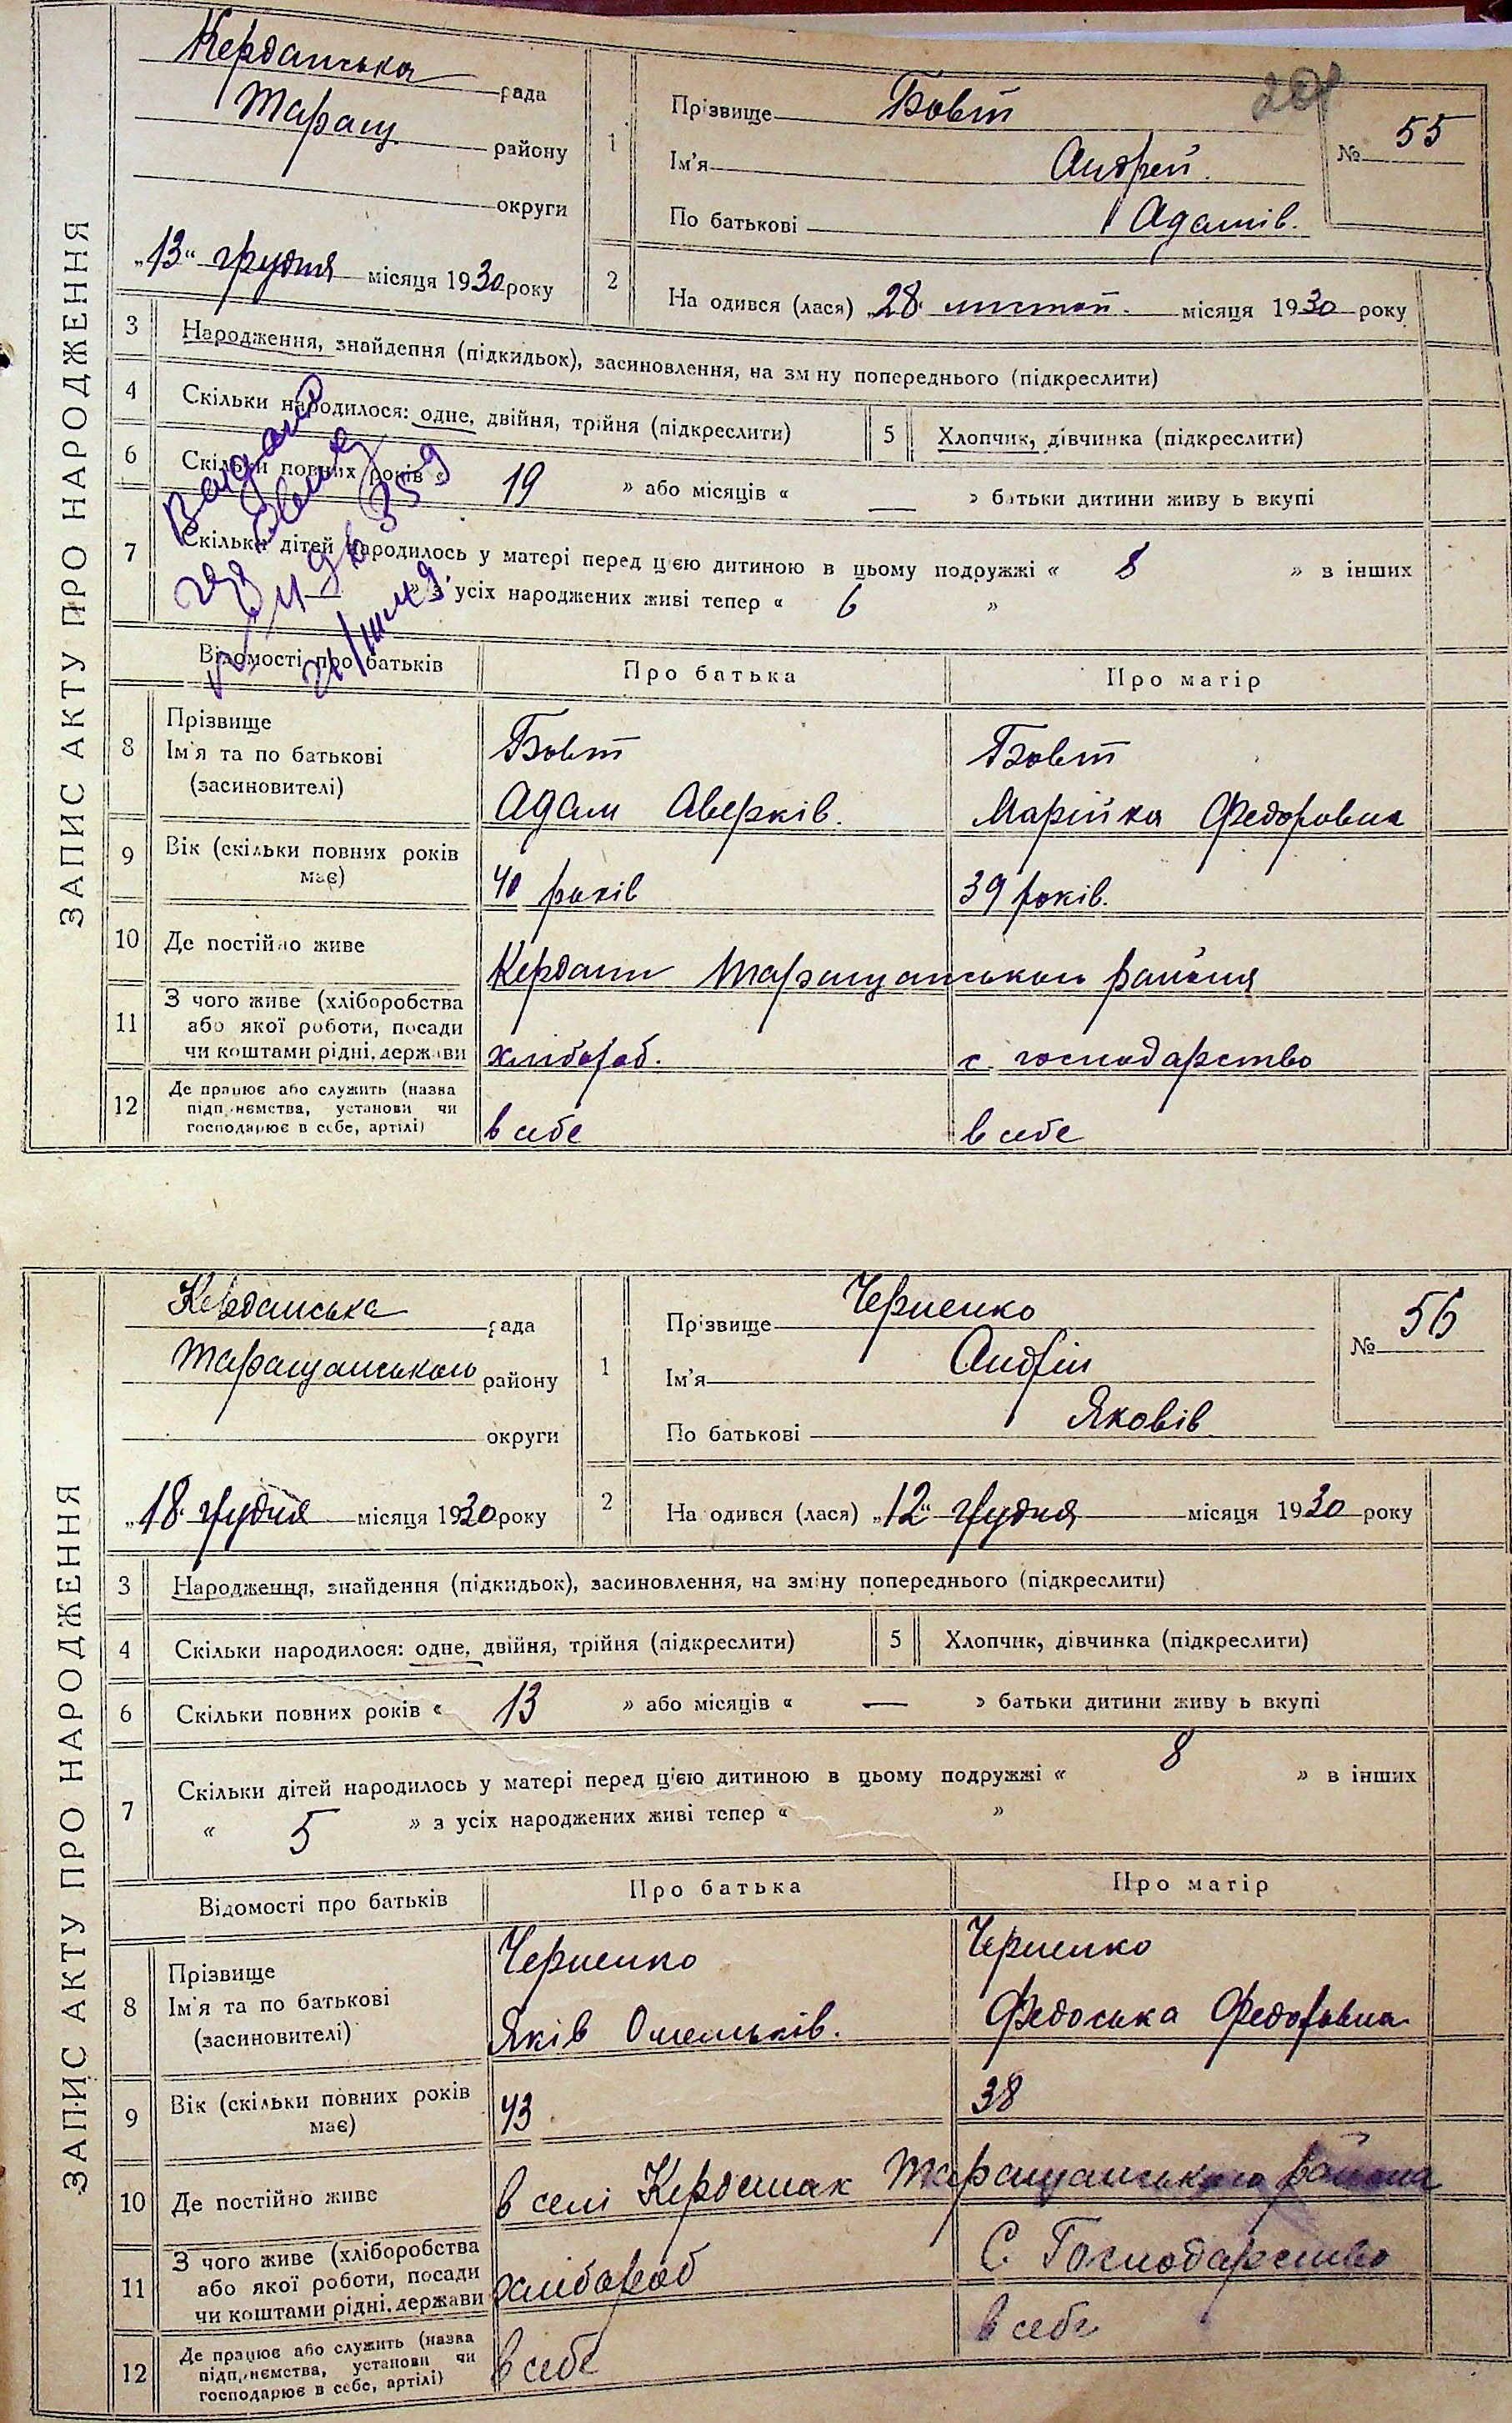 ЗАПИС АКТУ ПРО НАРОДЖЕННЯ
Керданська рада
Таращ. району
округи
„13“ грудня місяця 1930 року
1
Прізвище Бовт
Ім'я Андрей.
По батькові Адамів.
№ 55
2
На одився (лася) „28“ листоп. місяця 1930 року
3 Народження, знайдення (підкидьок), засиновлення, на зм ну попереднього (підкреслити)
4 Скільки народилося: одне, двійня, трійня (підкреслити) 5 Хлопчик, дівчинка (підкреслити)
6 Скільки повних років « 19 » або місяців « — » батьки дитини живу ь вкупі
7 Скільки дітей народилось у матері перед цією дитиною в цьому подружжі « 8 » в інших
» з усіх народжених живі тепер « 6 »
Відомості про батьків Про батька Про матір
8 Прізвище
Ім'я та по батькові
(засиновителі)
Бовт
Адам Аверків.
Бовт
Марійка Федоровна
9 Вік (скільки повних років має) 40 років 39 років.
10 Де постійно живе Кердани Таращанського района
11 З чого живе (хліборобства
або якої роботи, посади
чи коштами рідні, держави
хлібороб. с. господарство
12 Де працює або служить (назва
підп нємства, установи чи
господарює в себе, артілі)
в себе в себе
ЗАПИС АКТУ ПРО НАРОДЖЕННЯ
Керданська рада
Таращанського району
округи
„18“ грудня місяця 1930 року
1
Прізвище Черненко
Ім'я Андрій
По батькові Яковів
№ 56
2
На одився (лася) „12“ грудня місяця 1930 року
3 Народження, знайдення (підкидьок), засиновлення, на зміну попереднього (підкреслити)
4 Скільки народилося: одне, двійня, трійня (підкреслити) 5 Хлопчик, дівчинка (підкреслити)
6 Скільки повних років « 13 » або місяців « — » батьки дитини живу ь вкупі
7 Скільки дітей народилось у матері перед цією дитиною в цьому подружжі « 8 » в інших
« 5 » з усіх народжених живі тепер « »
Відомості про батьків Про батька Про матір
8 Прізвище
Ім'я та по батькові
(засиновителі)
Черненко
Яків Омельків.
Черненко
Федоська Федоровна
9 Вік (скільки повних років має) 43 38
10 Де постійно живе в селі Керданах Таращанського района
11 З чого живе (хліборобства
або якої роботи, посади
чи коштами рідні, держави
хлібороб С. Господарство
12 Де працює або служить (назва
підп нємства, установи чи
господарює в себе, артілі)
в себе в себе